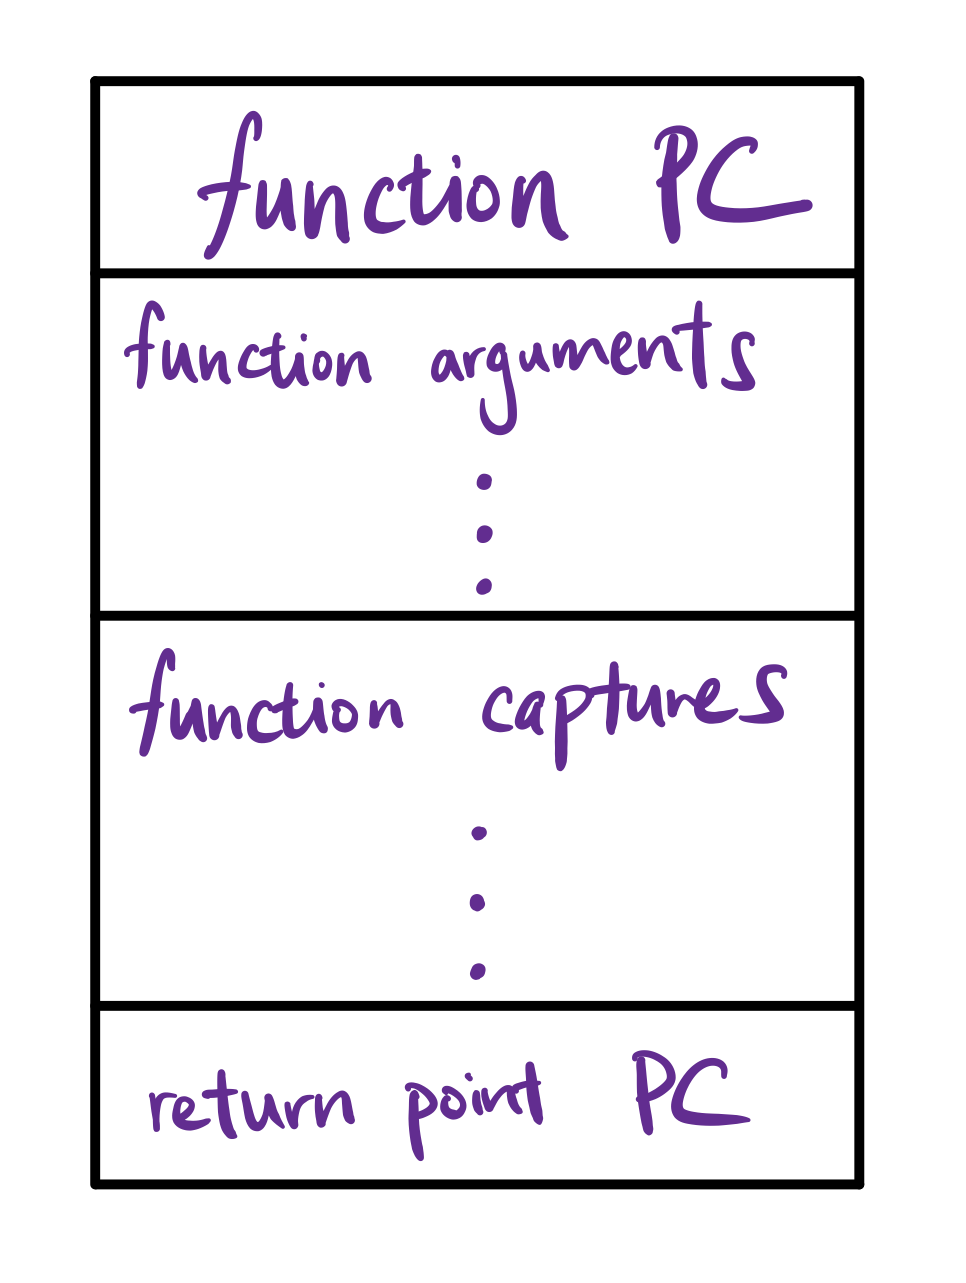 function PC
function arguments
function captures
return point PC